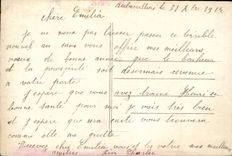 Aubervilliers le 31 Xbre 1914
chère Emilia
Je ne veux pas laisser passer ce terrible
nouvel an sans vous offrir mes meilleurs
voeux de bonne année que le bonheur
et la prospérité soit desormais revenue
a votre porte
J'espère que vous avez bonne
pour moi je vais très bien
et j'espère que ma carte vous trouvera
comme elle me quitte
Recevez chère Emilia les voeux mes meilleurs
Charles